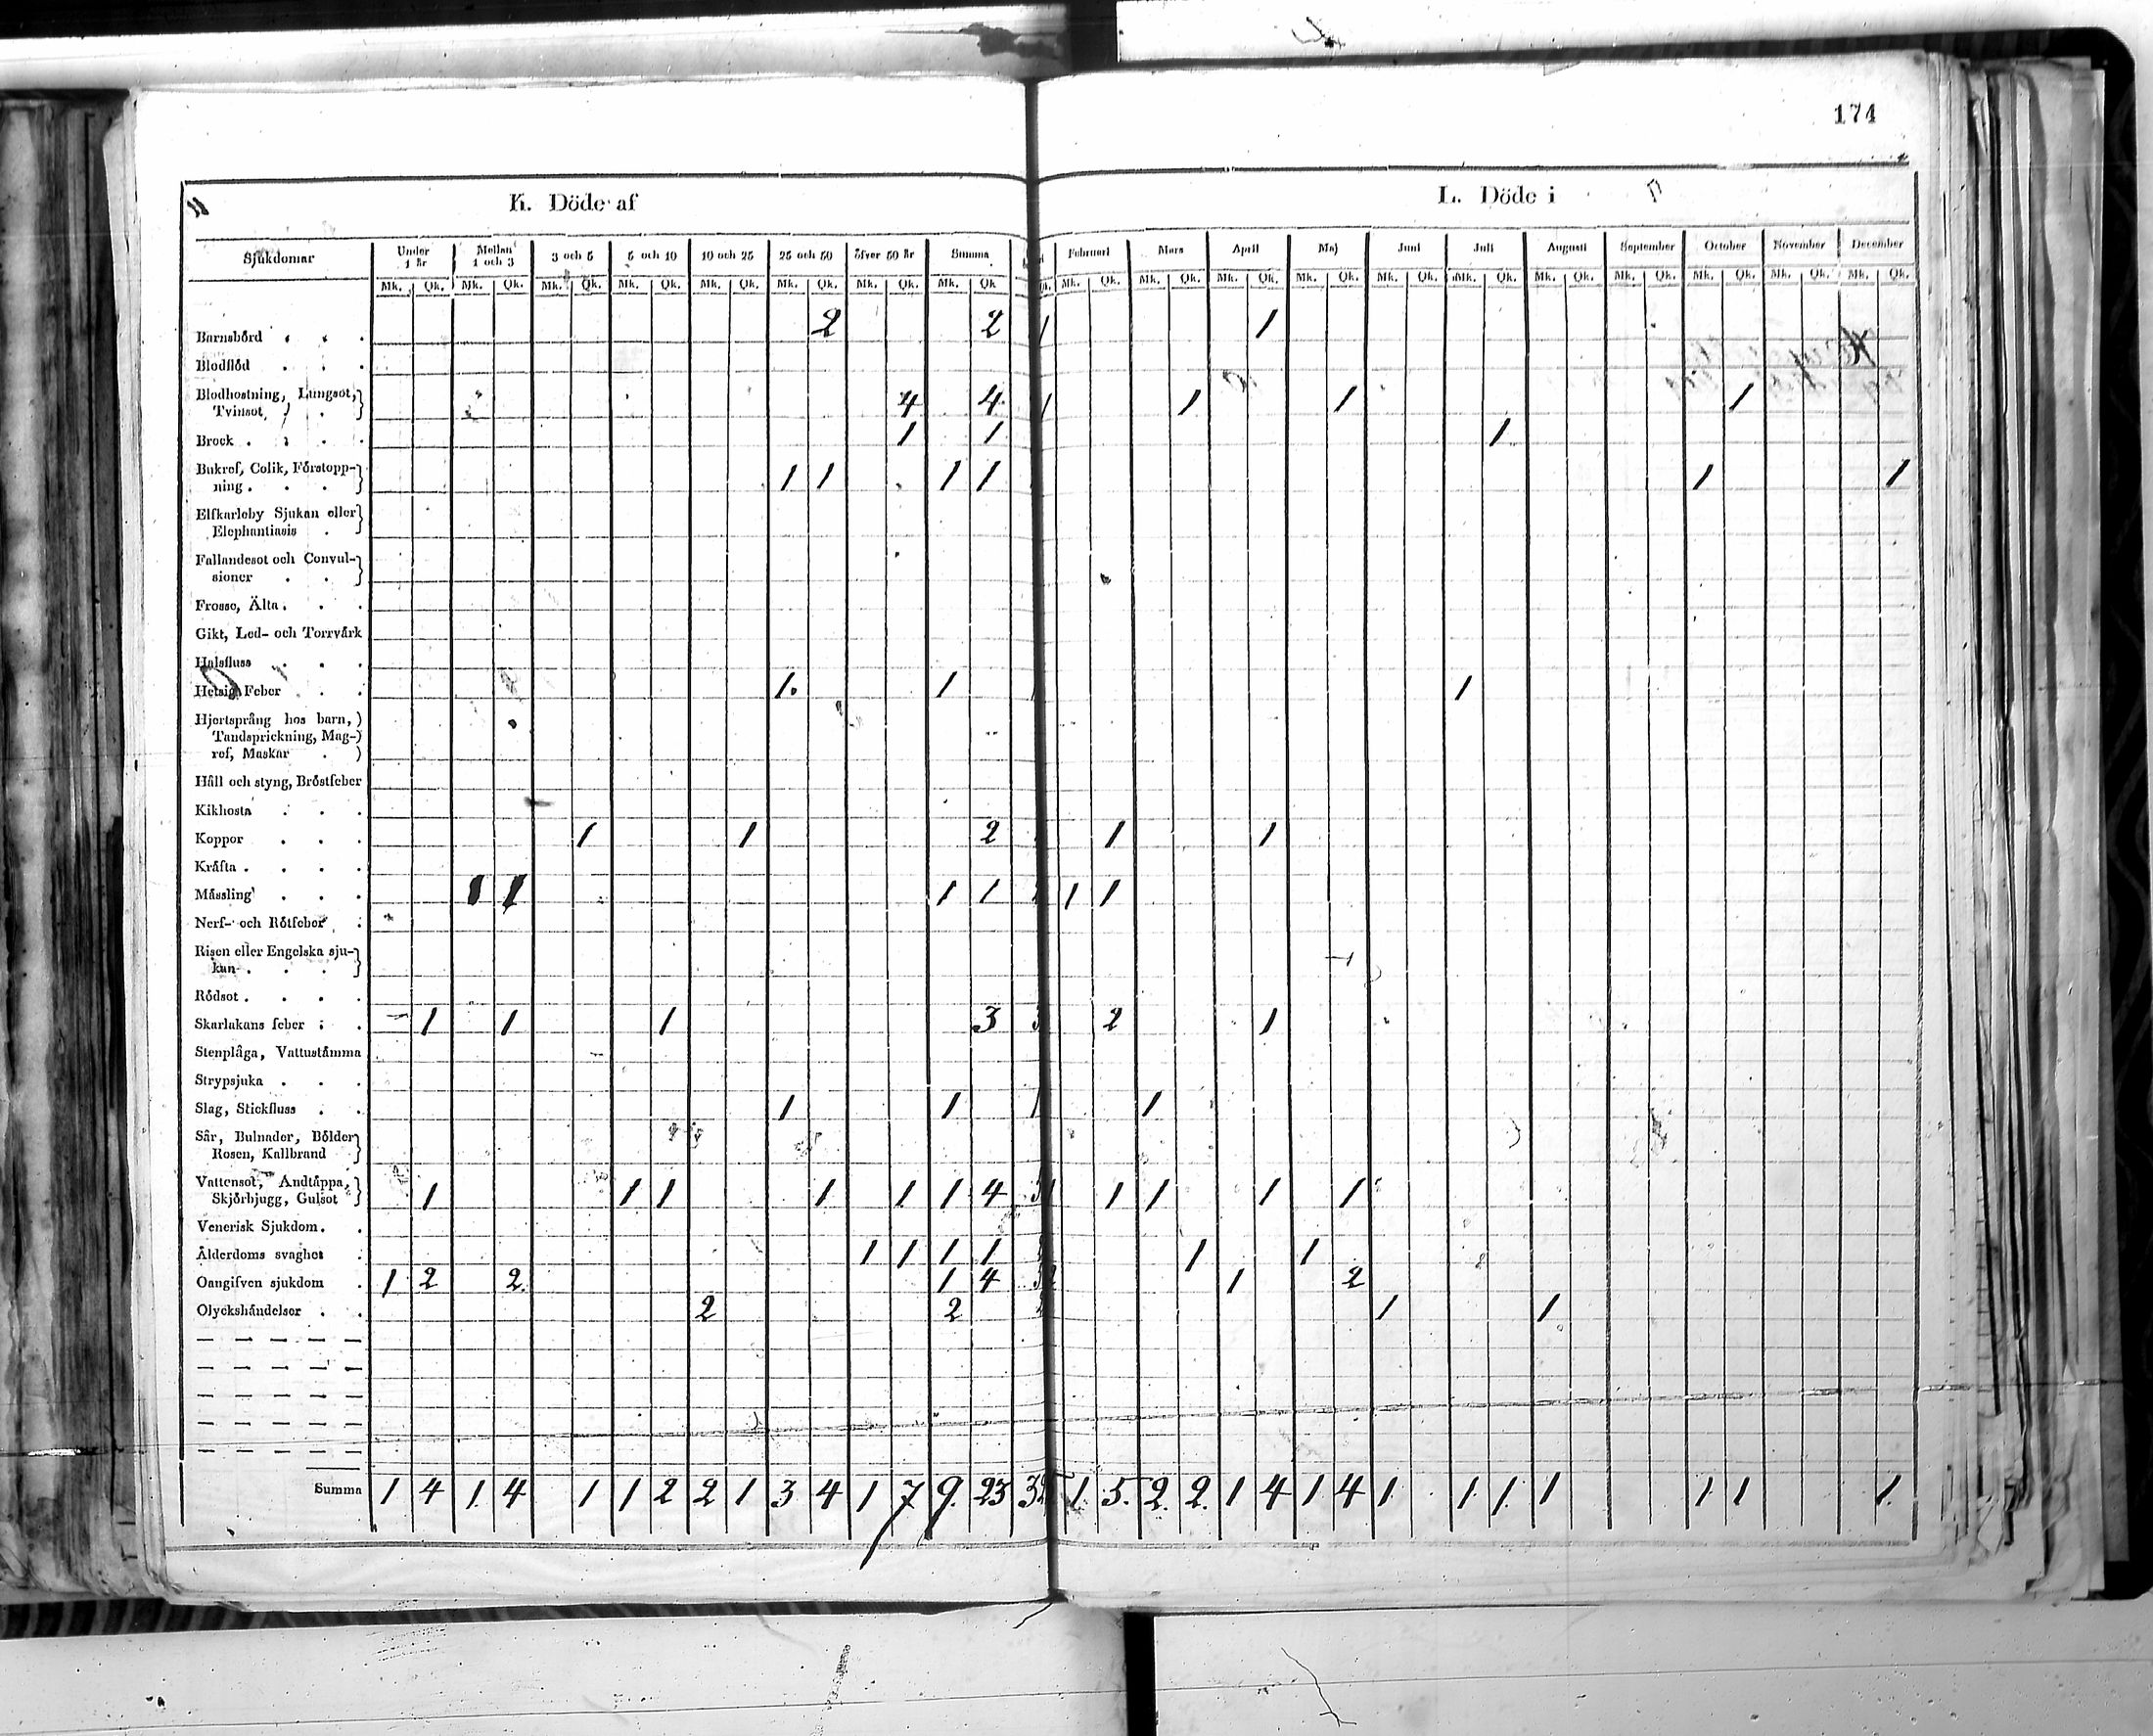 174
K. Döde af
L. Döde i
Sjukdomar Under 1 år Mellan 1 och 3 3 och 5 5 och 10 10 och 25 25 och 50 öfver 50 år Summa Februari Mars April Maj Juni Juli Augusti September October November December
Mk. Qk. Mk. Qk. Mk. Qk. Mk. Qk. Mk. Qk. Mk. Qk. Mk. Qk. Mk. Qk. Qk. Mk. Qk. Mk. Qk. Mk. Qk. Mk. Qk. Mk. Qk. Mk. Qk. Mk. Qk. Mk. Qk. Mk. Qk. Mk. Qk. Mk. Qk.
Barnsbörd 2 2 1 1
Blodflöd
Blodhostning, Lungsot,
Tvinsot, 4 4 1 1 1 1
Brock 1 1 1
Bukref, Colik, Förstopp-
ning 1 1 1 1 1 1
Elfkarleby Sjukan eller
Elephantiasis
Fallandesot och Convul-
sioner
Frossa, Älta
Gikt, Led- och Torrvärk
Halsfluss
Hetsig Feber 1. 1 1
Hjertsprång hos barn,
Tandsprickning, Mag-
ref, Maskar
Håll och styng, Bröstfeber
Kikhosta
Koppor 1 1 2 1 1
Kräfta
Mässling 1 1 1 1 1 1
Nerf- och Rötfeber
Risen eller Engelska sju-
kan
Rödsot
Skarlakans feber 1 1 1 3 3 2 1
Stenplåga, Vattustämma
Strypsjuka
Slag, Stickfluss 1 1 1
Sår, Bulnader, Bölder
Rosen, Kallbrand
Vattensot, Andtäppa,
Skjörbjugg, Gulsot 1 1 1 1 1 1 4 1 1 1 1
Venerisk Sjukdom
Ålderdoms svaghet 1 1 1 1 1 1
Oangifven sjukdom 1 2 2 1 4 1 2
Olyckshändelser 2 2 1 1
Summa 1 4 1 4 1 1 2 2 1 3 4 1 7 9. 23 1 5. 2. 2. 1 4 1 4 1 1. 1. 1 1 1 1.